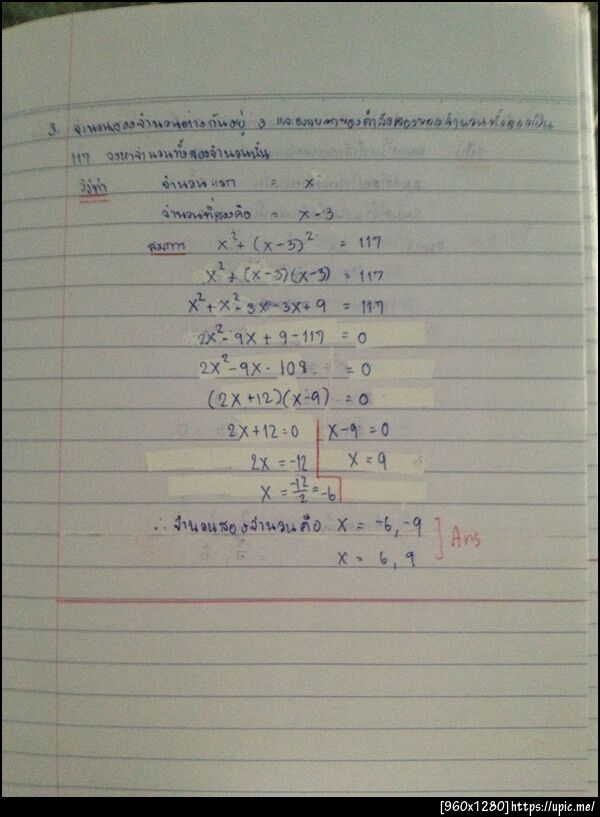 3. จำนวนสองจำนวนต่างกันอยู่ 3 และผลบวกของกำลังสองของจำนวนทั้งสองเป็น
117 จงหาจำนวนทั้งสองจำนวนนั้น
วิธีทำ จำนวนแรก = x
จำนวนที่สองคือ = x-3
สมการ x²+(x-3)² = 117
x²+(x-3)(x-3) = 117
x²+x²-3x-3x+9 = 117
2x²-9x+9-117 = 0
2x²-9x-108 = 0
(2x+12)(x-9) = 0
2x+12=0 x-9=0
2x = -12 x = 9
x = -12/2 = -6
∴ จำนวนสองจำนวนคือ x = -6,-9
x = 6, 9 Ans
[960x1280]https://upic.me/